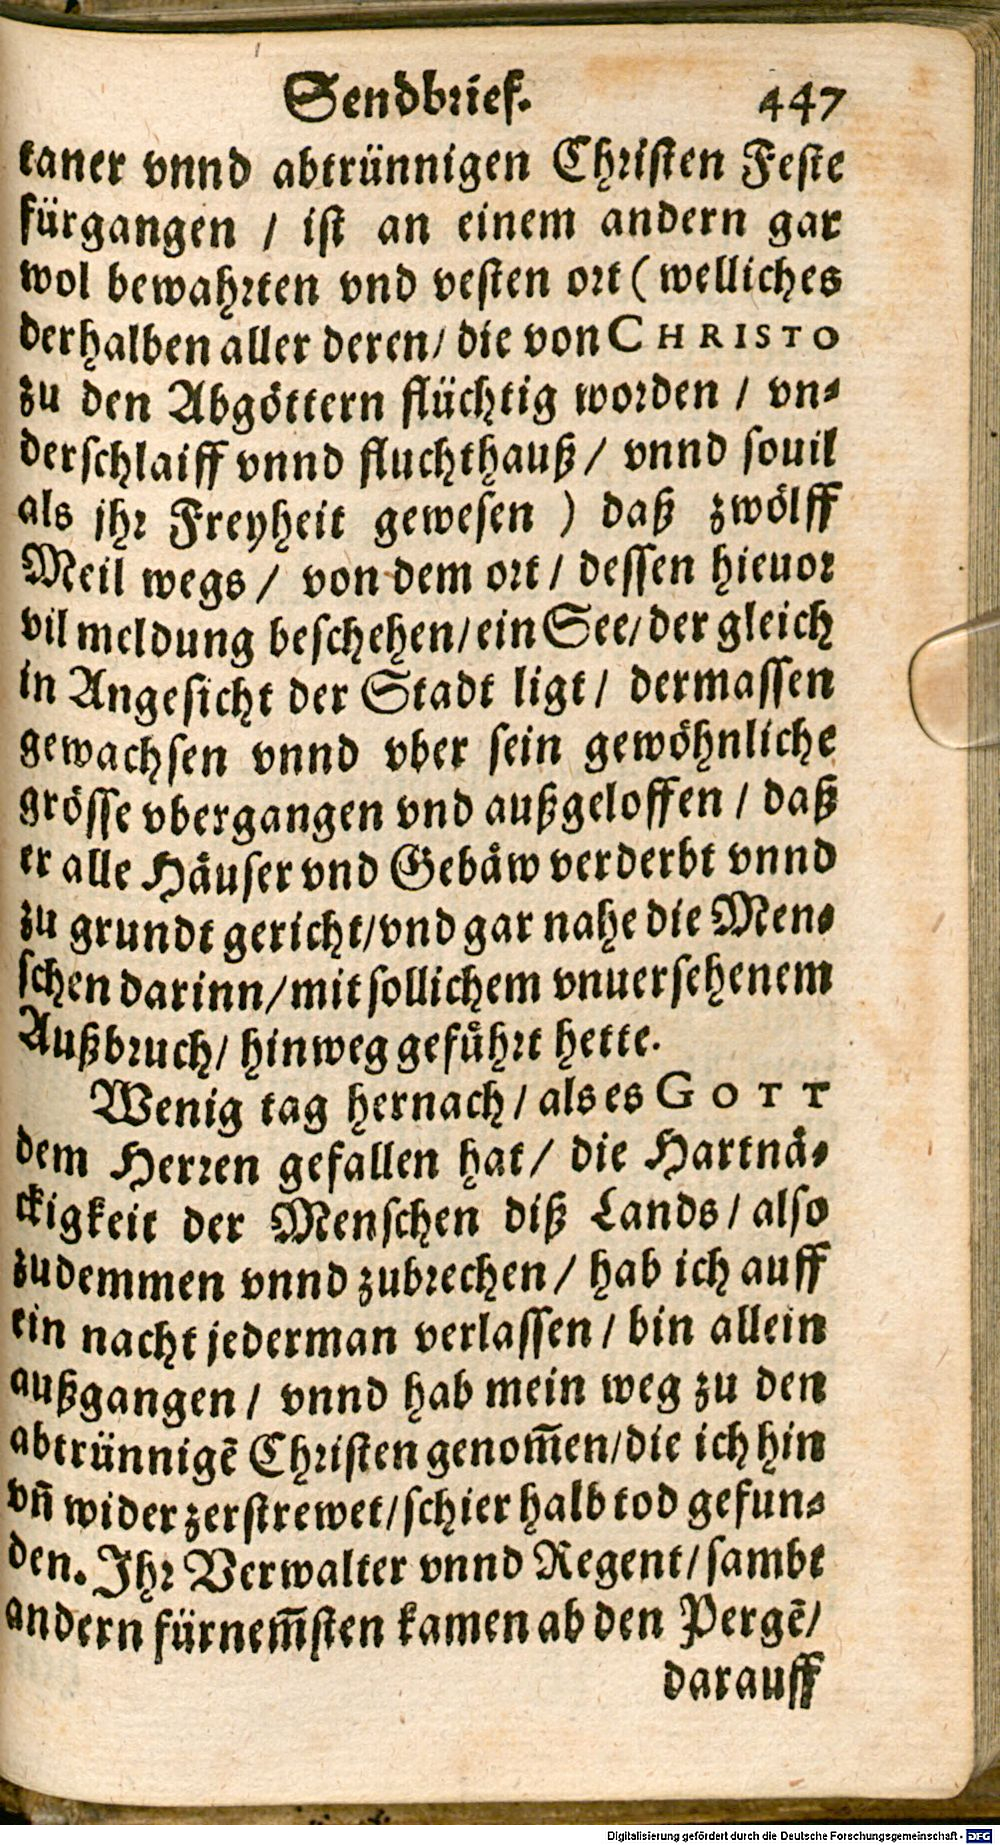 Sendbrief. 447
taner vnnd abtrünnigen Christen Feste
fürgangen / ist an einem andern gar
wol bewahrten vnd vesten ort ( welliches
derhalben aller deren / die von CHRISTO
zu den Abgöttern flüchtig worden / vn⸗
derschlaiff vnnd fluchthauß / vnnd souil
als jhr Freyheit gewesen ) daß zwölff
Meil wegs / von dem ort / dessen hieuor
vil meldung beschehen / ein See / der gleich
in Angesicht der Stadt ligt / dermassen
gewachsen vnnd vber sein gewöhnliche
grösse vbergangen vnd außgeloffen / daß
er alle Häuser vnd Gebäw verderbt vnnd
zu grundt gericht / vnd gar nahe die Men⸗
schen darinn / mit sollichem vnuersehenem
Außbruch / hinweg geführt hette.
Wenig tag hernach / als es GOTT
dem Herren gefallen hat / die Hartnä⸗
ckigkeit der Menschen diß Lands / also
zudemmen vnnd zubrechen / hab ich auff
ein nacht jederman verlassen / bin allein
außgangen / vnnd hab mein weg zu den
abtrünnigẽ Christen genom̃en / die ich hin
vñ wider zerstrewet / schier halb tod gefun⸗
den. Jhr Verwalter vnnd Regent / sambt
andern fürnem̃sten kamen ab den Pergẽ /
darauff
Digitalisierung gefördert durch die Deutsche Forschungsgemeinschaft - DFG